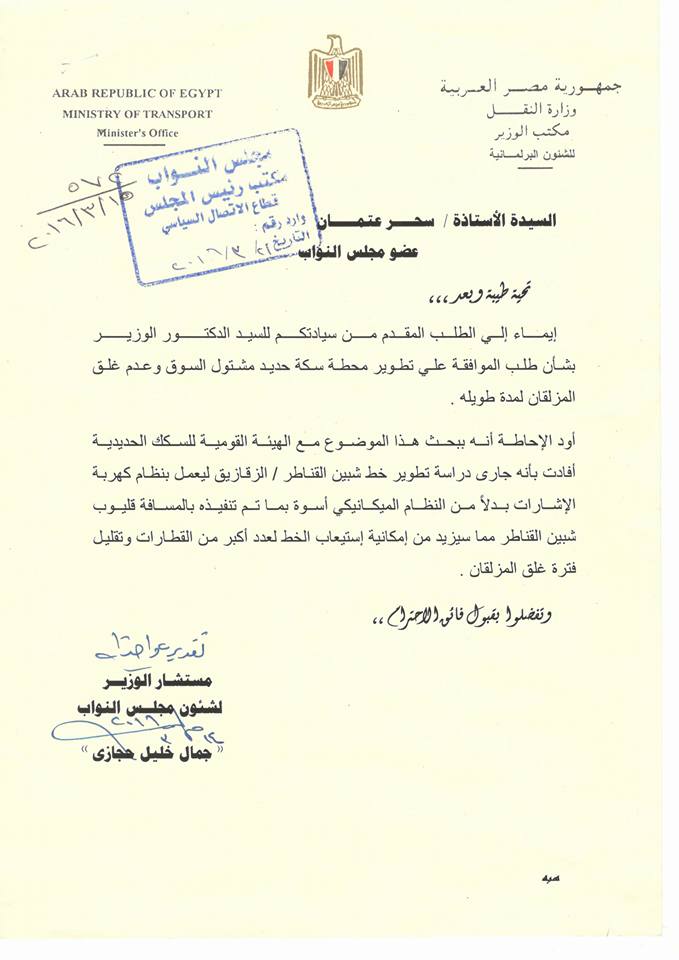 ARAB REPUBLIC OF EGYPT
MINISTRY OF TRANSPORT
Minister's Office
جمهورية مصر العربية
وزارة النقل
مكتب الوزير
للشئون البرلمانية
مجلس النواب
مكتب رئيس المجلس
قطاع الاتصال السياسي
وارد رقم :
التاريخ ٢١ / ٣ / ٢٠١٦
٢٠١٦/٣/١٥
السيدة الأستاذة / سحر عتمان
عضو مجلس النواب
تحية طيبة وبعد ،،،
إيماء إلي الطلب المقدم من سيادتكم للسيد الدكتور الوزير
بشأن طلب الموافقة علي تطوير محطة سكة حديد مشتول السوق وعدم غلق
المزلقان لمدة طويله .
أود الإحاطة أنه ببحث هذا الموضوع مع الهيئة القومية للسكك الحديدية
أفادت بأنه جارى دراسة تطوير خط شبين القناطر / الزقازيق ليعمل بنظام كهربة
الإشارات بدلاً من النظام الميكانيكي أسوة بما تم تنفيذه بالمسافة قليوب
شبين القناطر مما سيزيد من إمكانية إستيعاب الخط لعدد أكبر من القطارات وتقليل
فترة غلق المزلقان .
وتفضلوا بقبول فائق الاحترام ،،
مستشار الوزير
لشئون مجلس النواب
٢٠١٦
٣
١٤
" جمال خليل حجازى "